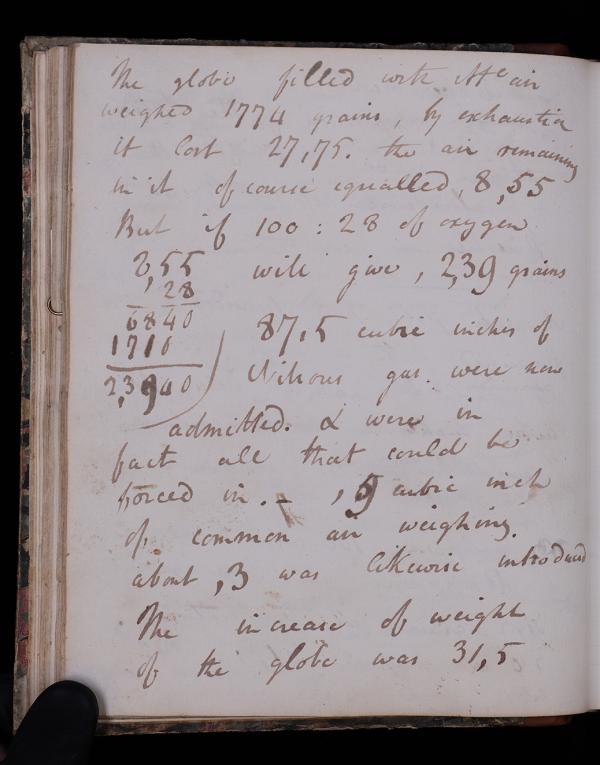 The globe filled with Atc air
weighed 1774 grains, by exhaustion
it lost 27,75. the air remaining
in it of course equalled, 8,55
But if 100 : 28 of oxygen
8,55 will give, 2,39 grains
,28
6840
1710
2,3940
87,5 cubic inches of
Nitrous gas. were now
admitted. & were in
fact all that could be
forced in. – ,9 cubic inch
of common air weighing.
about ,3 was likewise introduced
The increase of weight
of the globe was 31,5